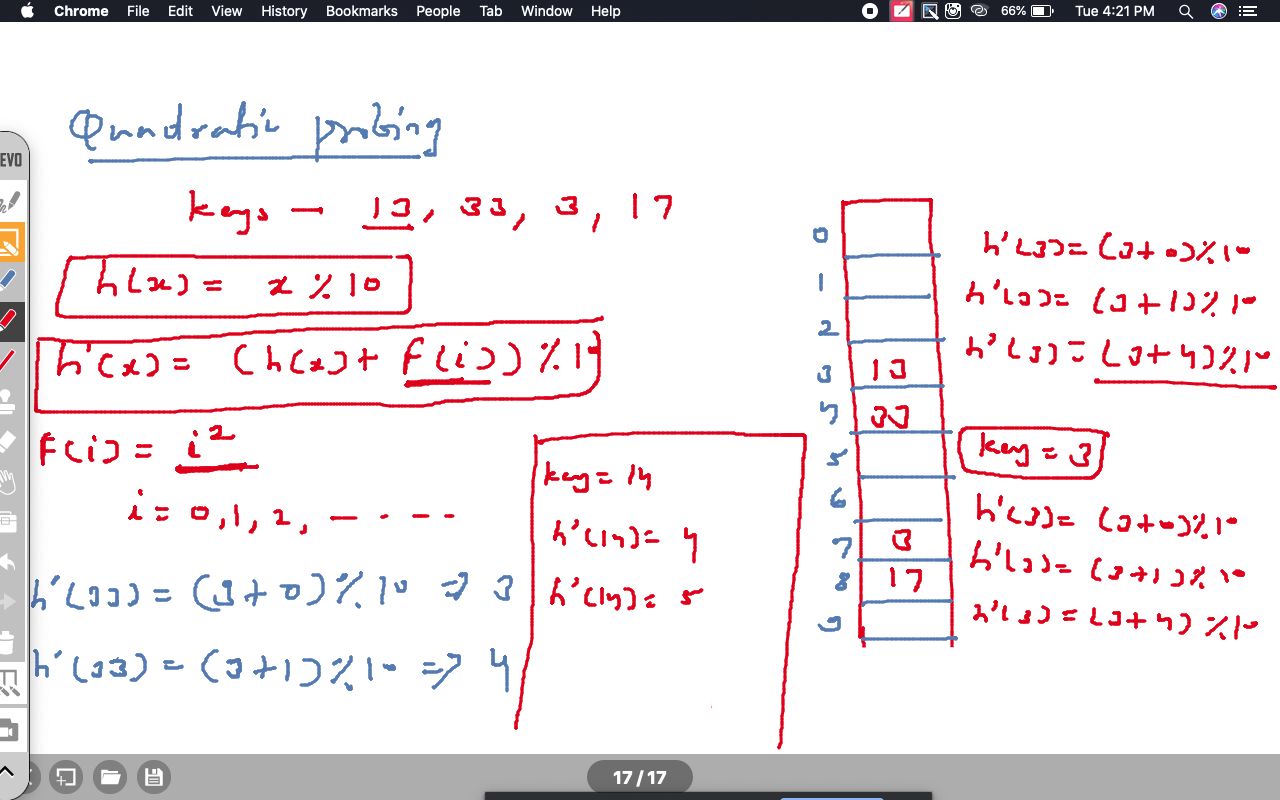 Chrome File Edit View History Bookmarks People Tab Window Help 66% Tue 4:21 PM
EVO
Quadratic probing
keys - 13, 33, 3, 17
h(x) = x % 10
h'(x) = (h(x) + f(i)) % 10
F(i) = i²
i = 0, 1, 2, - - - - -
h'(33) = (3+0) % 10 => 3
h'(33) = (3+1) % 10 => 4
key = 14
h'(14) = 4
h'(14) = 5
0
1
2
3 13
4 33
5
6
7 3
8 17
9
h'(3) = (3+0) % 10
h'(3) = (3+1) % 10
h'(3) = (3+4) % 10
key = 3
h'(3) = (3+0) % 10
h'(3) = (3+1) % 10
h'(3) = (3+4) % 10
17 / 17